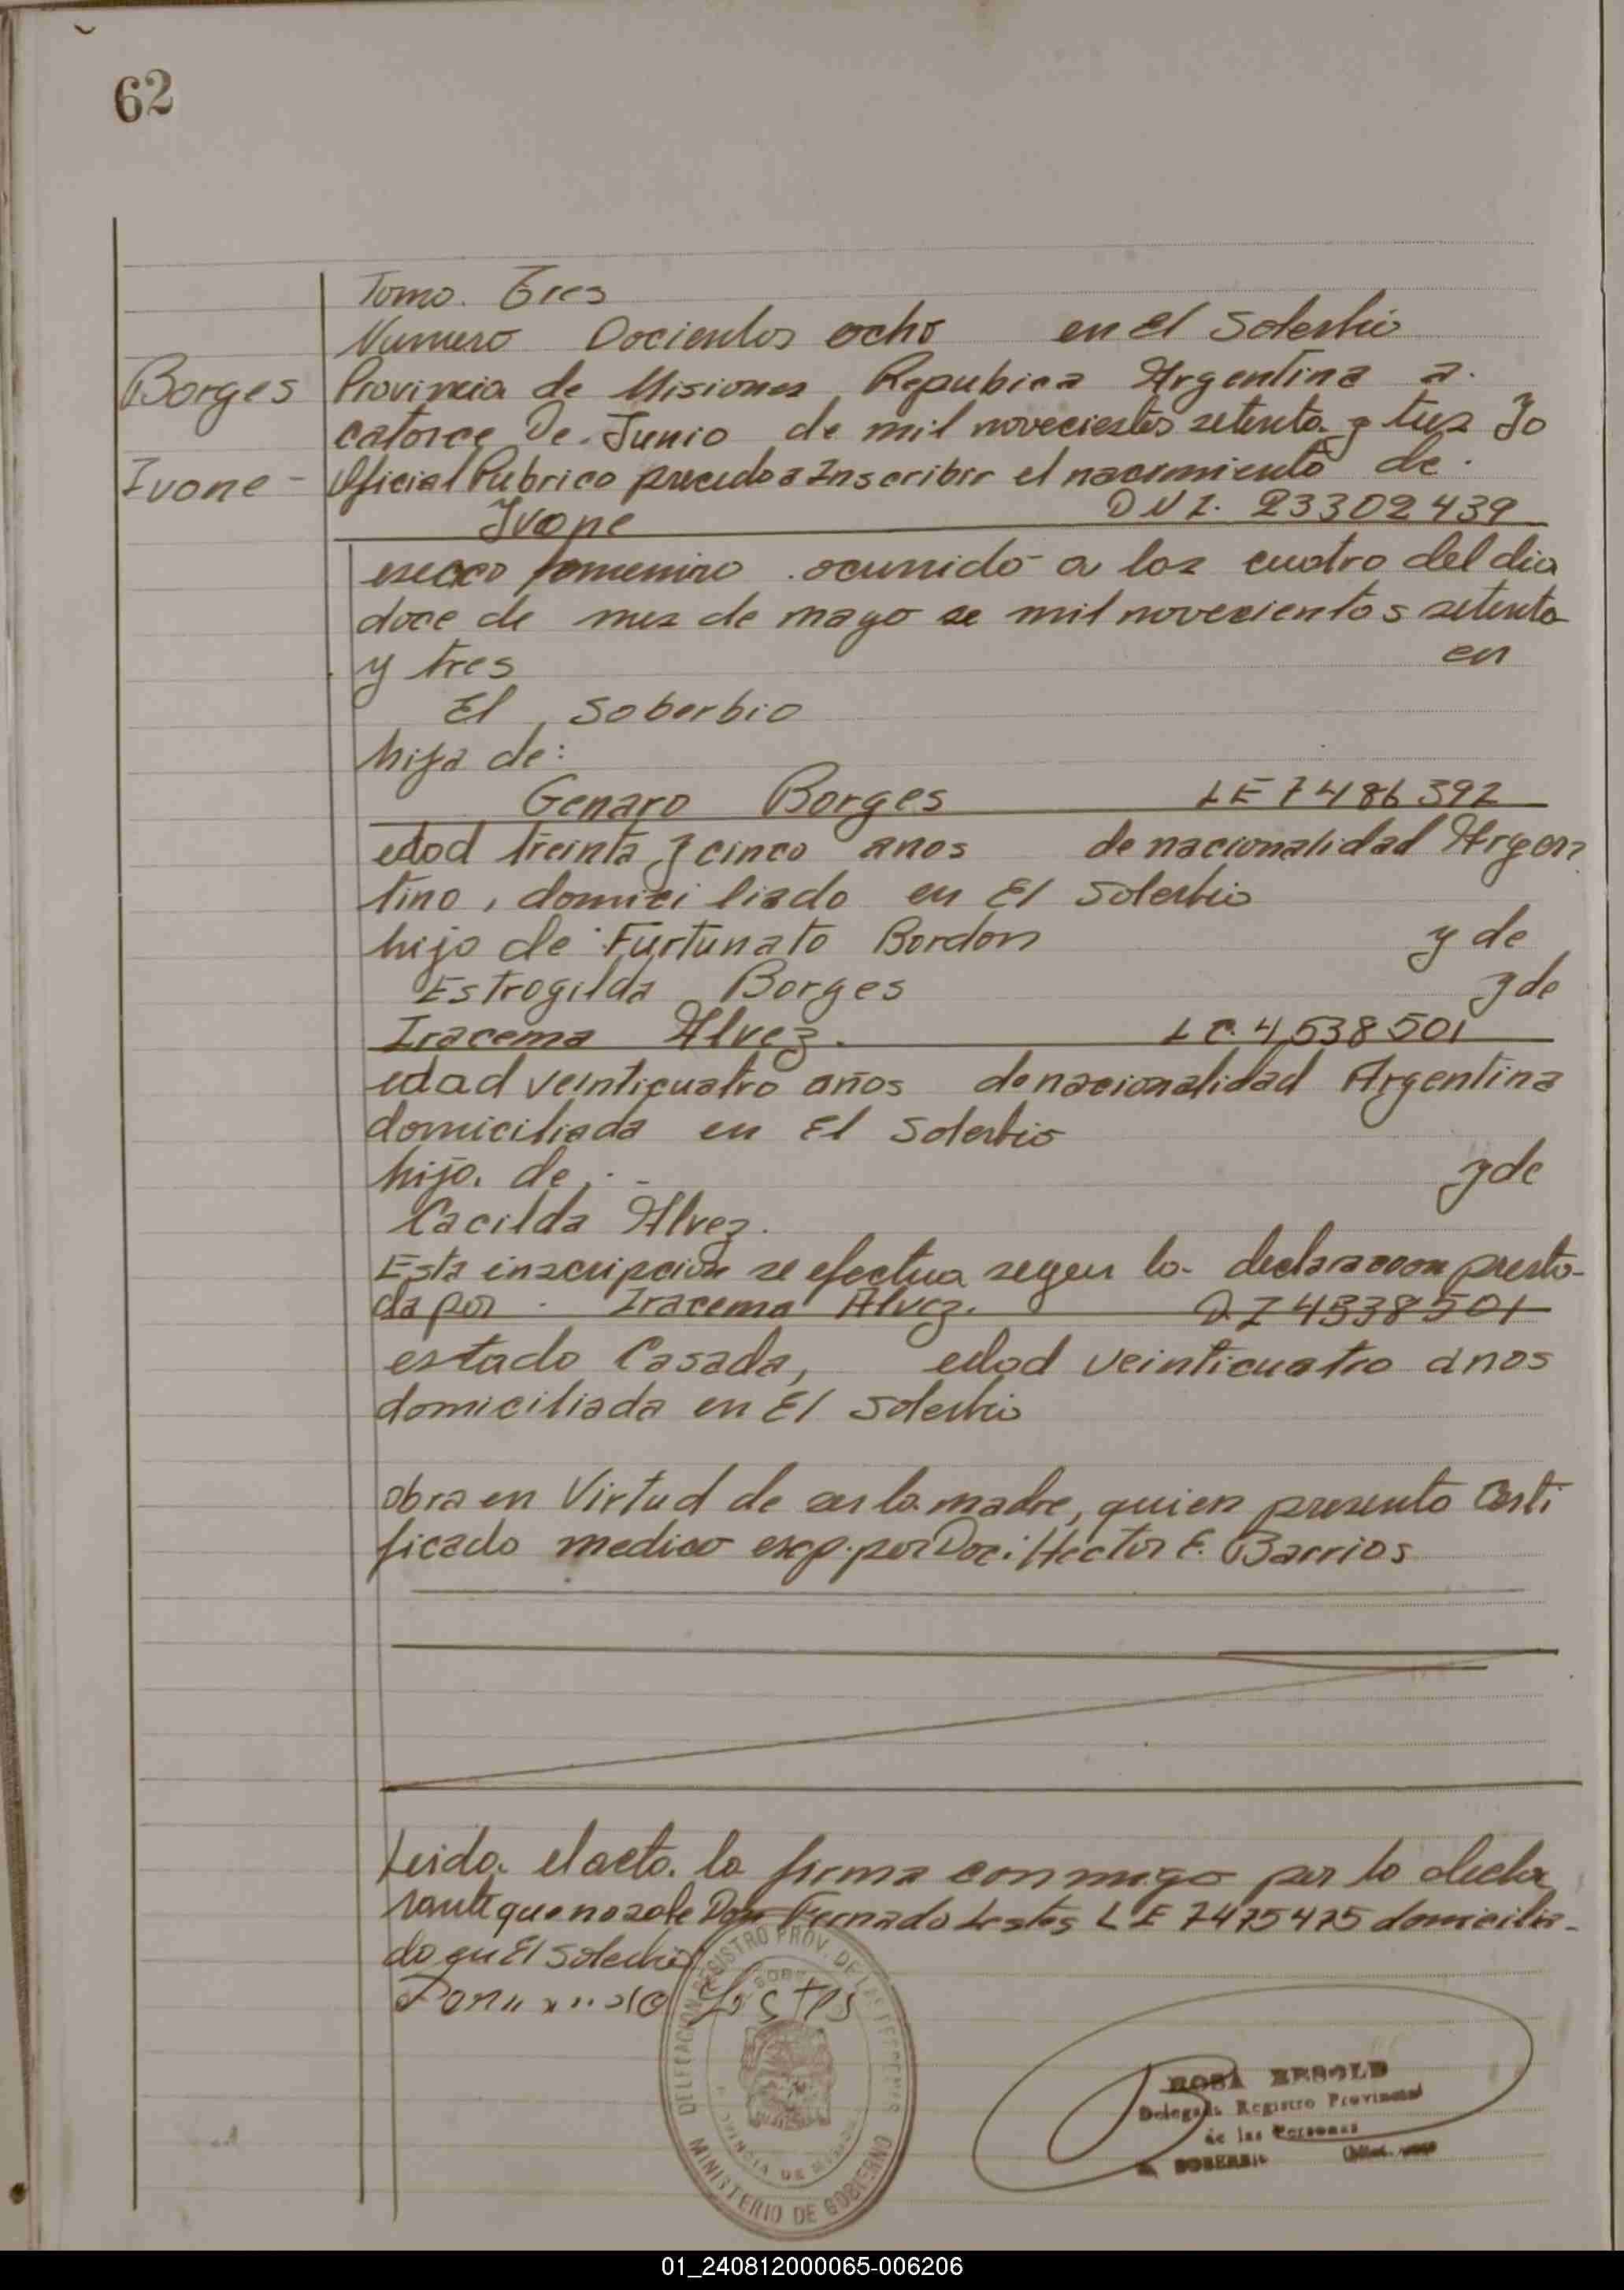 62
Tomo. Tres
Numero Docientos ocho en El Soberbio
Borges
Provincia de Misiones Repubica Argentina a.
catorce De Junio de mil novecientos setenta y tres Yo
Ivone -
Oficial Pubrico procedo a Inscribir el nacimiento de.
Ivone DNI. 23302439
femenino . ocurrido a las cuatro del dia
doce de mes de mayo de mil novecientos setenta
y tres en
El Soberbio
hija de:
Genaro Borges LE 7486392
edad treinta y cinco anos de nacionalidad Argen
tino, domiciliado en El Soberbio
hijo de Furtunato Bordon y de
Estrogilda Borges y de
Iracema Alvez. LC. 4538501
edad veinticuatro años de nacionalidad Argentina
domiciliada en El Soberbio
hijo. de . - y de
Cacilda Alvez.
Esta inscripcion se efectua segun la declaracion presta-
da por . Iracema Alvez. D.I 4538501
estado Casada, edad veinticuatro anos
domiciliada en El Soberbio
obra en Virtud de ser la madre, quien presento Certi
ficado medico exp. por Doc: Hector E. Barrios
Leida el acta. la firma conmigo por la decla
rante que no sabe Don Fernado Lestes LE 7475475 domicilia-
do en El Soberbio
Lestes
DELEGACION REGISTRO PROV. DE LAS PERSONAS
MINISTERIO DE GOBIERNO
PROVINCIA DE MISIONES
ROSA HESOLD
Delegada Registro Provincial
de las Personas
SOBERBIO
01_240812000065-006206